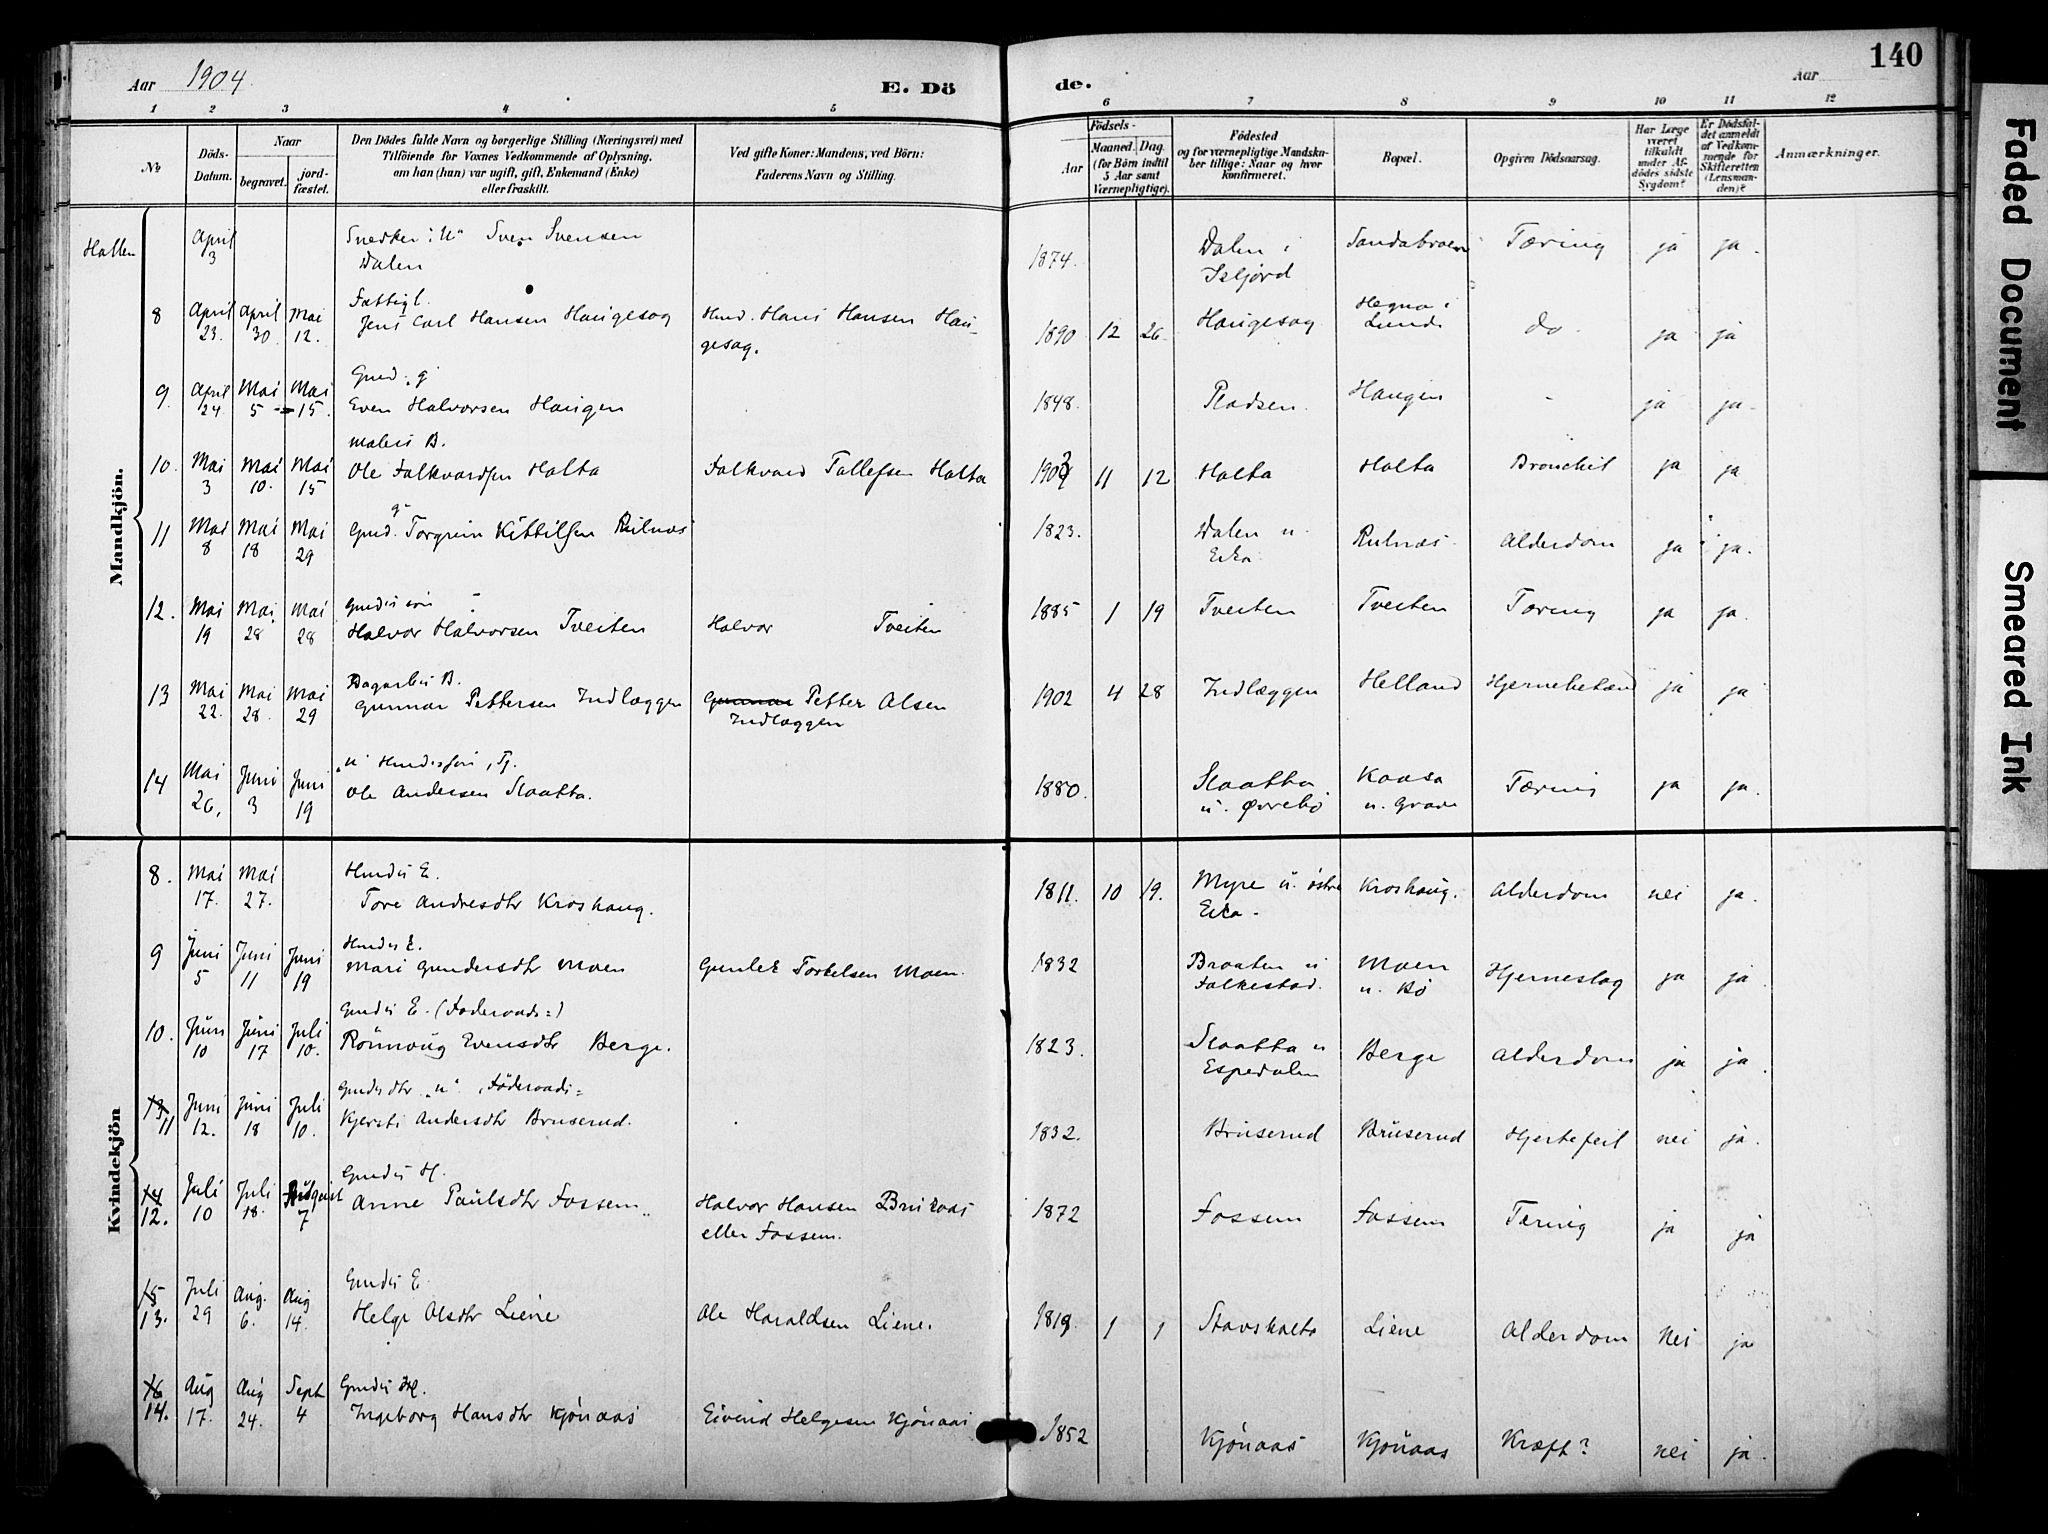 Aar 1904.
E. Dö
de.
Aar
140
1 2 3 4 5 6 7 8 9 10 11 12
No.
Döds-Datum.
Naar
begravet.
jord-fæstet.
Den Dödes fulde Navn og borgerlige Stilling (Næringsvei) med
Tilföiende for Voxnes Vedkommende af Oplysning,
om han (hun) var ugift, gift, Enkemand (Enke)
eller fraskilt.
Ved gifte Koner: Mandens, ved Börn:
Faderens Navn og Stilling.
Födsels-
Aar
Maaned. Dag.
(for Börn indtil
5 Aar samt
Værnepligtige).
Födested
og for værnepligtige Mandska-
ber tillige: Naar og hvor
konfirmeret.
Bopæl.
Opgiven Dödsaarsag.
Har Læge
været
tilkaldt
under Af-
dödes sidste
Sygdom?
Er Dödsfal-
det anmeldt
af Vedkom-
mende for
Skifteretten
(Lensman-
den)?
Anmærkninger.
Mandkjön.
April 3 Snedker "U" Sven Svensen
Dalen 1874. Dalen i Tæring ja ja.
8 April 23. April 30. Mai 12. Fattigl.
Jens Carl Hansen Haugesag Hmd. Hans Hansen Hau-
gesag. 1890 12 26. Haugesag Hegna i Lunde do. ja ja
9. April 24. Mai 5 Mai 15. Gmd. "g"
Even Halvorsen Haugen 1848. Pladsen. Haugen - ja ja.
10. Mai 3 Mai 10. Mai 15 B.
Ole Falkvardsen Holta Falkvard Tollefsen Holta 1903 11 12 Holta Holta Bronchit ja ja.
11 Mai 8 Mai 18 Mai 29 "g"
Gmd. Torgrim Kittilsen 1823. Dalen Alderdom ja ja.
12. Mai 19 Mai 28 Mai 28
Halvor Halvorsen Tveiten Halvor Tveiten 1885 1 19 Tveiten Tveiten Tæring ja ja.
13 Mai 22. Mai 28. Mai 29 B.
Gunnar Pettersen Indlæggen Gunnar Petter Olsen
Indlæggen 1902 4 28 Indlæggen Helland ja ja
14 Mai 26. Juni 3 Juni 19 "u"
Ole Andersen Slaatta. 1880. Slaatta
u. Øvrebø Kaasa
u. Grave Tæring ja ja.
Kvindekjön
8. Mai 17. Mai 27. E.
Tore Andresdtr Kroshaug. 1811. 10 19. Myre u. østre Kroshaug. Alderdom nei ja.
9 Juni 5 Juni 11 Juni 19 E.
Mari Gundersdtr Moen Gunlek Torkelsen Moen. 1832 Braaten u
Folkestad. Moen
u. Bø Hjerneslag ja ja.
10. Juni 10 Juni 17 Juli 10. E. (Føderaads=)
Rönnoug Evensdtr Berge. 1823. Slaatta u
Espedalen Berge Alderdom ja ja.
13 11 Juni 12. Juni 18 Juli 10. "u", Föderaads=
Kjersti Andersdtr Bruserud. 1832. Bruserud Bruserud Hjertefeil nei ja.
14 12. Juli 10 Juli 18. August 7 H.
Anne Paulsdtr Fossem Halvor Hansen
eller Fossem. 1872 Fossem Fossem Tæring ja ja
15 13. Juli 29 Aug. 6. Aug 14. E.
Helge Olsdtr Liene Ole Haraldsen Liene. 1819. 1 1 Stavsholta Liene Alderdom nei ja
16 14. Aug 17. Aug 24. Sept 4
Ingeborg Hansdtr Kjönaas Eivind Helgesen Kjönaas 1852 Kjönaas Kjönaas Kræft? nei ja.
Faded Document
Smeared Ink